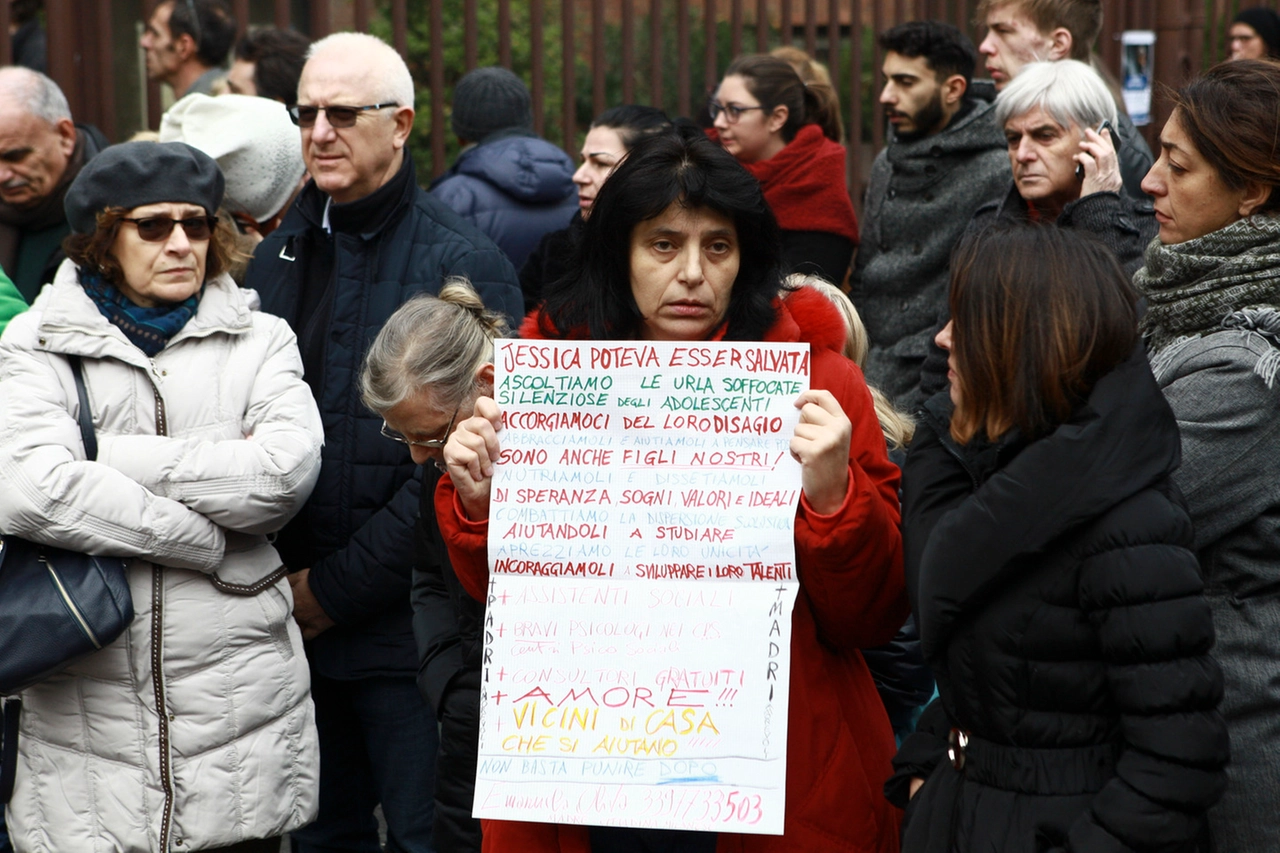 JESSICA POTEVA ESSER SALVATA
ASCOLTIAMO LE URLA SOFFOCATE
SILENZIOSE DEGLI ADOLESCENTI
ACCORGIAMOCI DEL LORO DISAGIO
ABBRACCIAMOLI E AIUTIAMOLI A PENSARE
SONO ANCHE FIGLI NOSTRI!
NUTRIAMOLI E DISSETIAMOLI
DI SPERANZA, SOGNI, VALORI E IDEALI
COMBATTIAMO LA DISPERSIONE SCOLASTICA
AIUTANDOLI A STUDIARE
APREZZIAMO LE LORO UNICITA'
INCORAGGIAMOLI A SVILUPPARE I LORO TALENTI
+ ASSISTENTI SOCIALI
+ BRAVI PSICOLOGI NEI
centri Psico Sociali
+ CONSULTORI GRATUITI
+ AMORE!!!
+ VICINI DI CASA
CHE SI AIUTANO !!!!!
+ PADRI
+ MADRI
NON BASTA PUNIRE DOPO